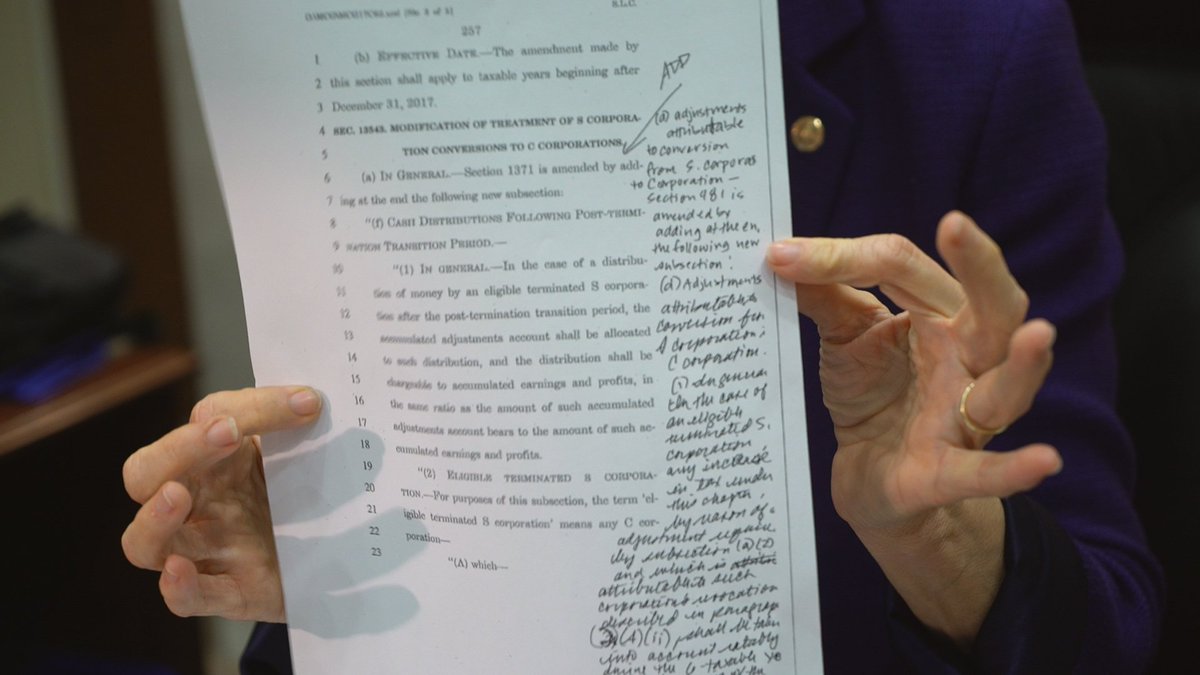 S.L.C.
257
1 (b) EFFECTIVE DATE.—The amendment made by
2 this section shall apply to taxable years beginning after
3 December 31, 2017.
4 SEC. 13543. MODIFICATION OF TREATMENT OF S CORPORA-
5 TION CONVERSIONS TO C CORPORATIONS.
6 (a) IN GENERAL.—Section 1371 is amended by add-
7 ing at the end the following new subsection:
8 "(f) CASH DISTRIBUTIONS FOLLOWING POST-TERMI-
9 NATION TRANSITION PERIOD.—
10 "(1) IN GENERAL.—In the case of a distribu-
11 tion of money by an eligible terminated S corpora-
12 tion after the post-termination transition period, the
13 accumulated adjustments account shall be allocated
14 to such distribution, and the distribution shall be
15 chargeable to accumulated earnings and profits, in
16 the same ratio as the amount of such accumulated
17 adjustments account bears to the amount of such ac-
18 cumulated earnings and profits.
19 "(2) ELIGIBLE TERMINATED S CORPORA-
20 TION.—For purposes of this subsection, the term 'el-
21 igible terminated S corporation' means any C cor-
22 poration—
23 "(A) which—
ADD
(a) adjustments
attributable
to conversion
from S. corporas
to Corporation —
Section 481 is
amended by
adding at the en,
the following new
subsection:
(d) Adjustments
attributable
conversion for
S corporation;
C corporation.
(1) In genera
in the case of
an eligible
terminated S.
corporation
any increase
in tax under
this chapter,
by reason of
adjustment require
by subsection (a)(2)
and which is
attributable such
corporation's revocation
described in paragrap
(A)(ii), shall be taken
into account ratably
during the 6 taxable ye